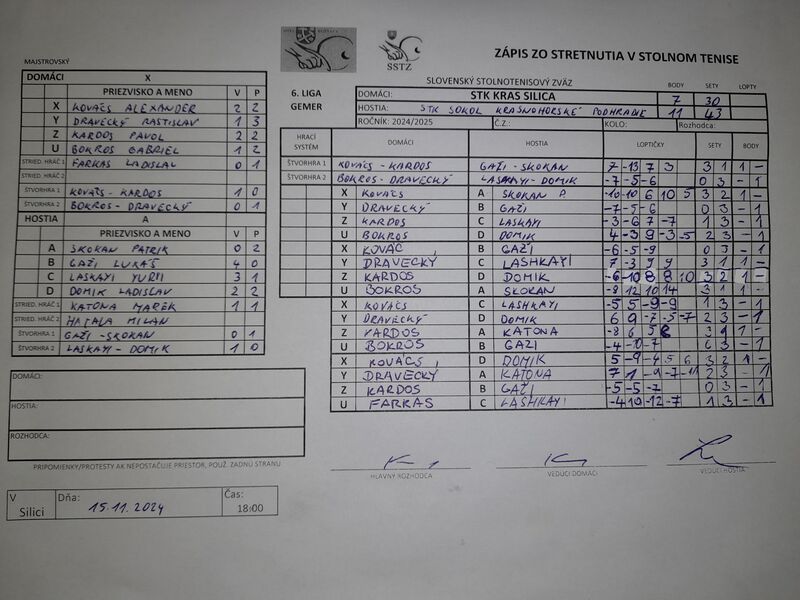 ZÁPIS ZO STRETNUTIA V STOLNOM TENISE
SSTZ
SLOVENSKÝ STOLNOTENISOVÝ ZVÄZ
MAJSTROVSKÝ
DOMÁCI X
PRIEZVISKO A MENO V P
X KOVÁCS ALEXANDER 2 2
Y DRAVECKÝ RASTISLAV 1 3
Z KARDOS PAVOL 2 2
U BOKROS GABRIEL 1 2
STRIED. HRÁČ 1 FARKAS LADISLAL 0 1
STRIED. HRÁČ 2
ŠTVORHRA 1 KOVÁCS - KARDOS 1 0
ŠTVORHRA 2 BOKROS - DRAVECKÝ 0 1
HOSTIA A
PRIEZVISKO A MENO V P
A SKOKAN PATRIK 0 2
B GAŽI LUKÁŠ 4 0
C LASKAYI YURII 3 1
D DOMIK LADISLAV 2 2
STRIED. HRÁČ 1 KATONA MAREK 1 1
STRIED. HRÁČ 2 HATALA MILAN
ŠTVORHRA 1 GAŽI - SKOKAN 0 1
ŠTVORHRA 2 LASKAYI - DOMIK 1 0
DOMÁCI:
HOSTIA:
ROZHODCA:
PRIPOMIENKY/PROTESTY AK NEPOSTAČUJE PRIESTOR, POUŽ. ZADNU STRANU
V Silici
Dňa: 15.11.2024
Čas: 18:00
6. LIGA GEMER
BODY SETY LOPTY
DOMÁCI: STK KRAS SILICA 7 30
HOSTIA: STK SOKOL KRASNOHORSKÉ PODHRADIE 11 43
ROČNÍK: 2024/2025 Č.Z.: KOLO: Rozhodca:
HRACÍ SYSTÉM DOMÁCI HOSTIA LOPTIČKY SETY BODY
ŠTVORHRA 1 KOVÁCS - KARDOS GAŽI - SKOKAN 7 -13 7 3 3 1 1 -
ŠTVORHRA 2 BOKROS - DRAVECKÝ LASKAYI - DOMIK -7 -5 -6 0 3 - 1
X KOVÁCS A SKOKAN P. -10 -10 6 10 5 3 2 1 -
Y DRAVECKÝ B GAŽI -7 -5 -6 0 3 - 1
Z KARDOS C LASKAYI -3 -6 7 -7 1 3 - 1
U BOKROS D DOMIK 4 -3 9 -3 -5 2 3 - 1
X KOVÁC B GAŽI -6 -5 -9 0 3 - 1
Y DRAVECKÝ C LASHKAYI 7 -3 9 9 3 1 1 -
Z KARDOS D DOMIK -6 -10 8 8 10 3 2 1 -
U BOKROS A SKOKAN -8 12 10 14 3 1 1 -
X KOVÁCS C LASHKAYI -5 5 -9 -9 1 3 - 1
Y DRAVECKÝ D DOMIK 6 9 -7 -5 -7 2 3 - 1
Z KARDOS A KATONA -8 6 5 8 3 1 1 -
U BOKROS B GAZI -4 -10 -7 0 3 - 1
X KOVÁCS D DOMIK 5 -9 -4 5 6 3 2 1 -
Y DRAVECKÝ A KATONA 7 1 -9 -7 -11 2 3 - 1
Z KARDOS B GAŽI -5 -5 -7 0 3 - 1
U FARKAS C LASHKAYI -4 10 -12 -7 1 3 - 1
HLAVNÝ ROZHODCA VEDÚCI DOMÁCI VEDÚCI HOSTIA